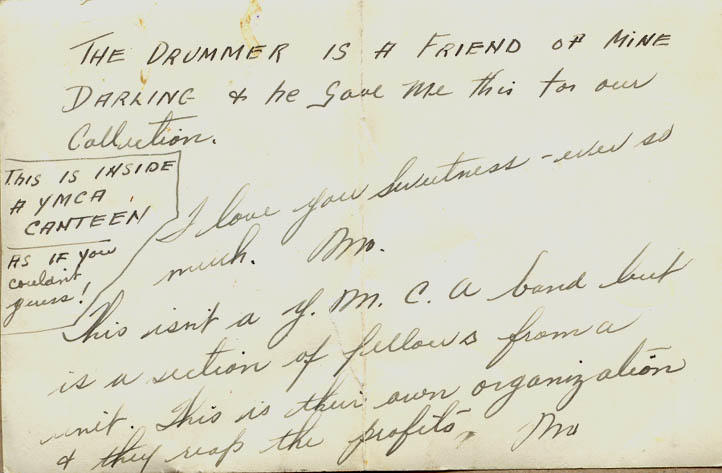 THE DRUMMER IS A FRIEND OF MINE
DARLING & he gave me this for our
Collection.
THIS IS INSIDE
A YMCA
CANTEEN
AS IF you
couldn't
guess!
I love you Sweetness - ever so
much. Mo.
This isn't a Y. M. C. A band but
is a section of fellows from a
unit. This is their own organization
& they reap the profits. Mo